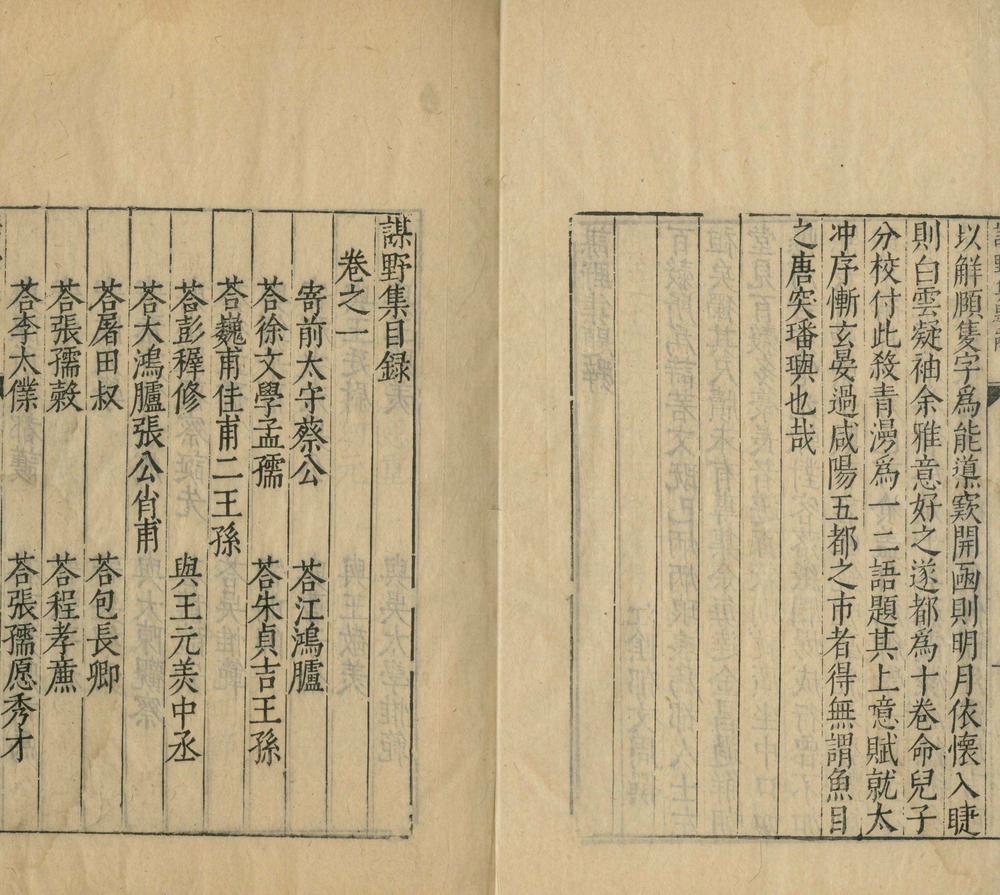 以解頤隻字爲能導窾開函則明月依懷入睫
則白雲凝袖余雅意好之遂都爲十卷命兒子
分校付此殺青漫爲一二語題其上意賦就太
冲序慚玄晏過咸陽五都之市者得無謂魚目
之唐突璠璵也哉
謀野集目録
卷之一
寄前太守蔡公　荅江鴻臚
荅徐文學孟孺　荅朱貞吉王孫
荅巍甫佳甫二王孫
荅彭穉修　與王元美中丞
荅大鴻臚張公肖甫
荅屠田叔　荅包長卿
荅張孺榖　荅程孝蔍
荅李太僕　荅張孺愿秀才